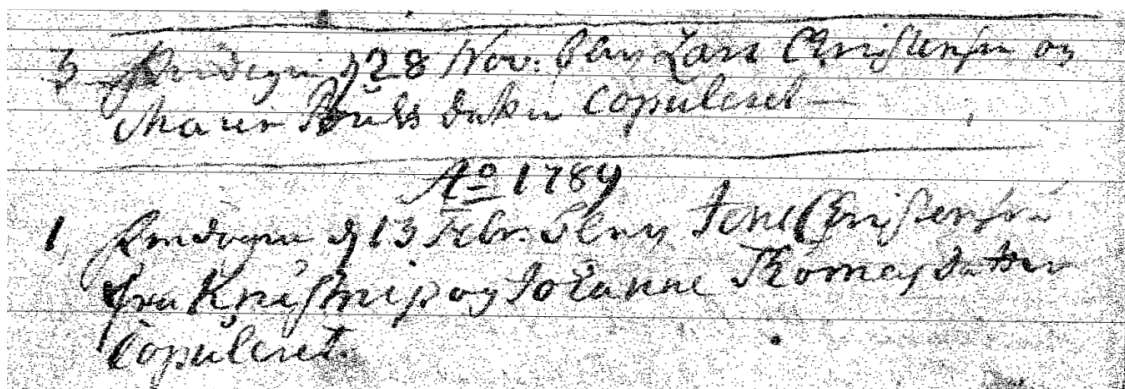 3. Fredagen d 28 Nov: blev Lars Christensen og
Maren Pouls datter copuleret
Ao 1784
1, Fredagen d 13 Febr. blev Jens Christensen
fra og Johanne Thomasdatter
Copuleret.